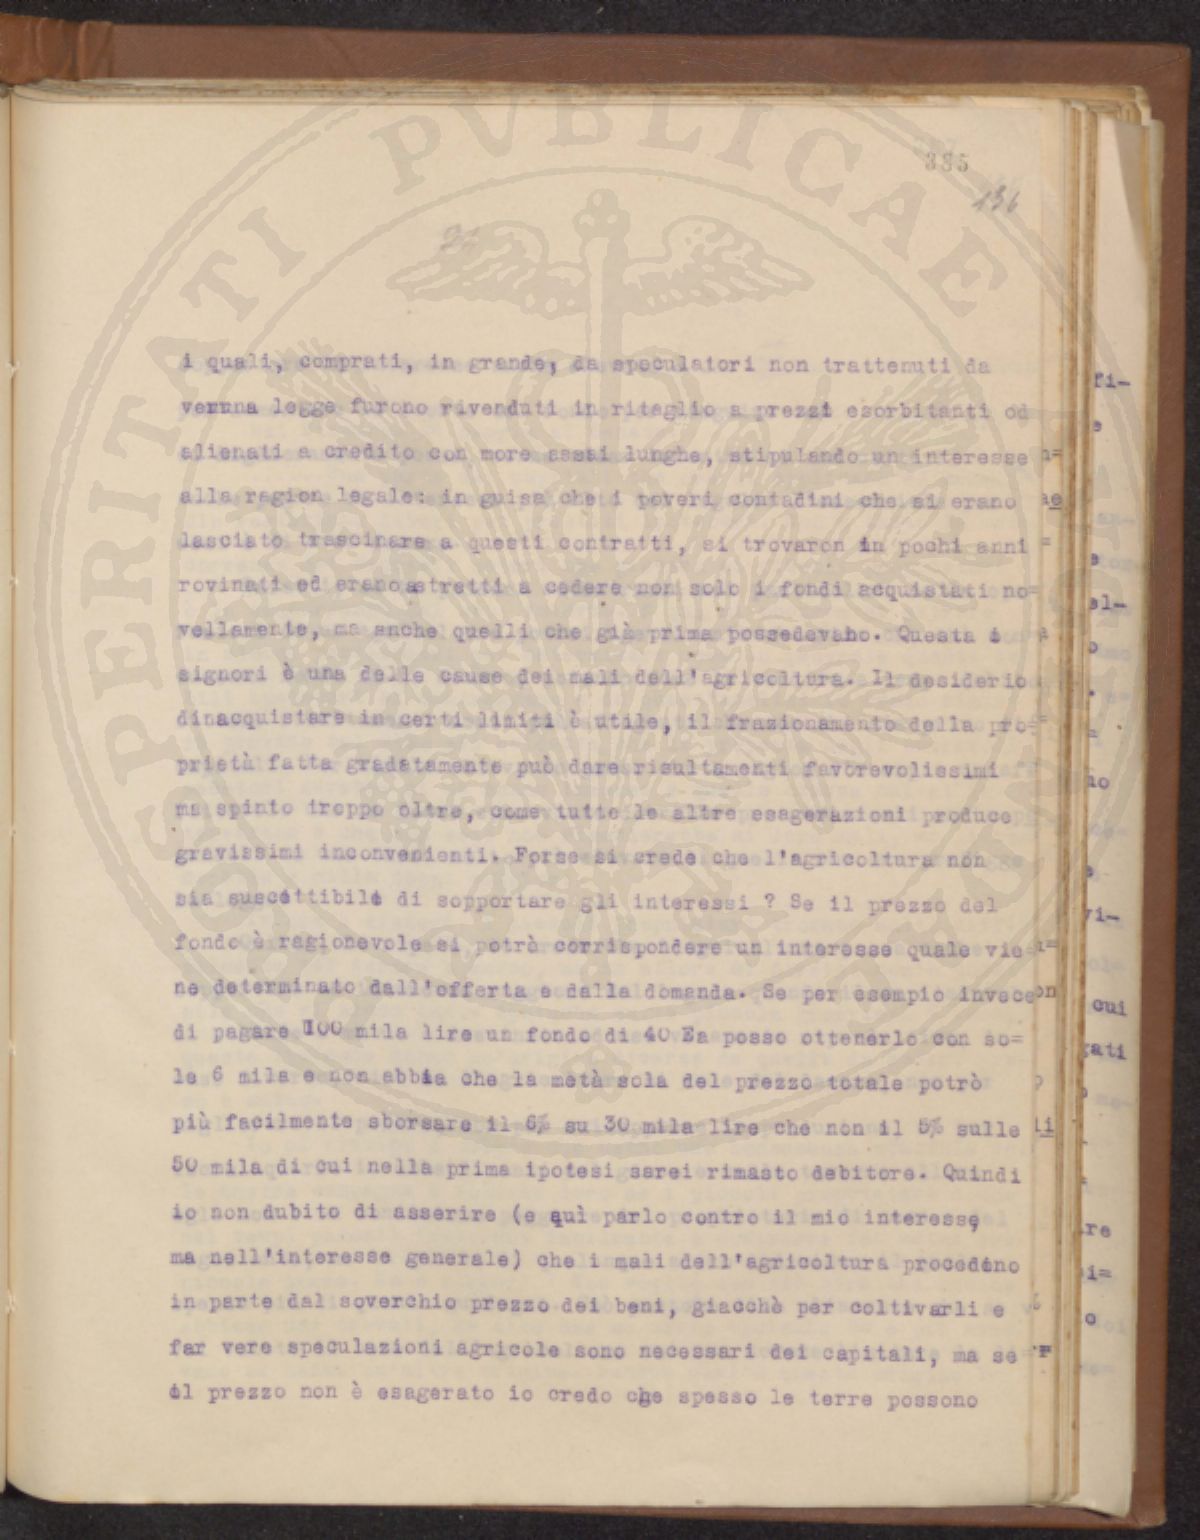 PROSPERITATI PVBLICAE
335
136
22
i quali, comprati, in grande, da speculatori non trattenuti da
veruna legge furono rivenduti in ritaglio a prezzi esorbitanti od
alienati a credito con more assai lunghe, stipulando un interesse
alla ragion legale: in guisa che i poveri contadini che si erano
lasciato trascinare a questi contratti, si trovaron in pochi anni
rovinati ed erano astretti a cedere non solo i fondi acquistati no=
vellamente, ma anche quelli che già prima possedevano. Questa o
signori è una delle cause dei mali dell'agricoltura. Il desiderio
dinacquistare in certi limiti è utile, il frazionamento della pro=
prietà fatta gradatamente può dare risultamenti favorevolissimi
ma spinto troppo oltre, come tutte le altre esagerazioni produce
gravissimi inconvenienti. Forse si crede che l'agricoltura non
sia suscettibile di sopportare gli interessi ? Se il prezzo del
fondo è ragionevole si potrà corrispondere un interesse quale vie=
ne determinato dall'offerta e dalla domanda. Se per esempio invece
di pagare 100 mila lire un fondo di 40 Ea posso ottenerlo con so=
le 6 mila e non abbia che la metà sola del prezzo totale potrò
più facilmente sborsare il 6% su 30 mila lire che non il 5% sulle
50 mila di cui nella prima ipotesi sarei rimasto debitore. Quindi
io non dubito di asserire (e quì parlo contro il mio interesse,
ma nell'interesse generale) che i mali dell'agricoltura procedono
in parte dal soverchio prezzo dei beni, giacchè per coltivarli e
far vere speculazioni agricole sono necessari dei capitali, ma se
il prezzo non è esagerato io credo che spesso le terre possono
fi-
e
el-
o
no
vi-
cui
gati